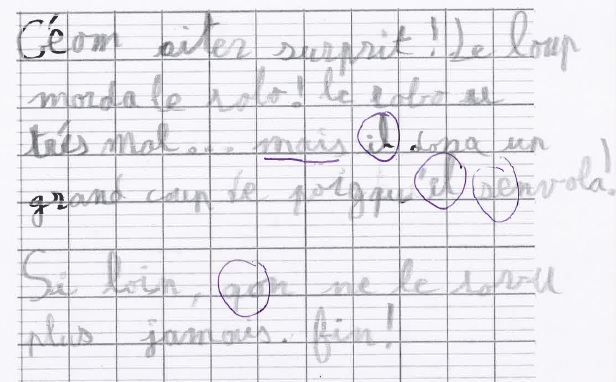 Céom aiter surprit! Le loup
morda le robo! le robo u
très mal... mais il dona un
grand coup de poigqu'il s'envola!
Si loin, qon ne le sovu
plus jamais. fin!